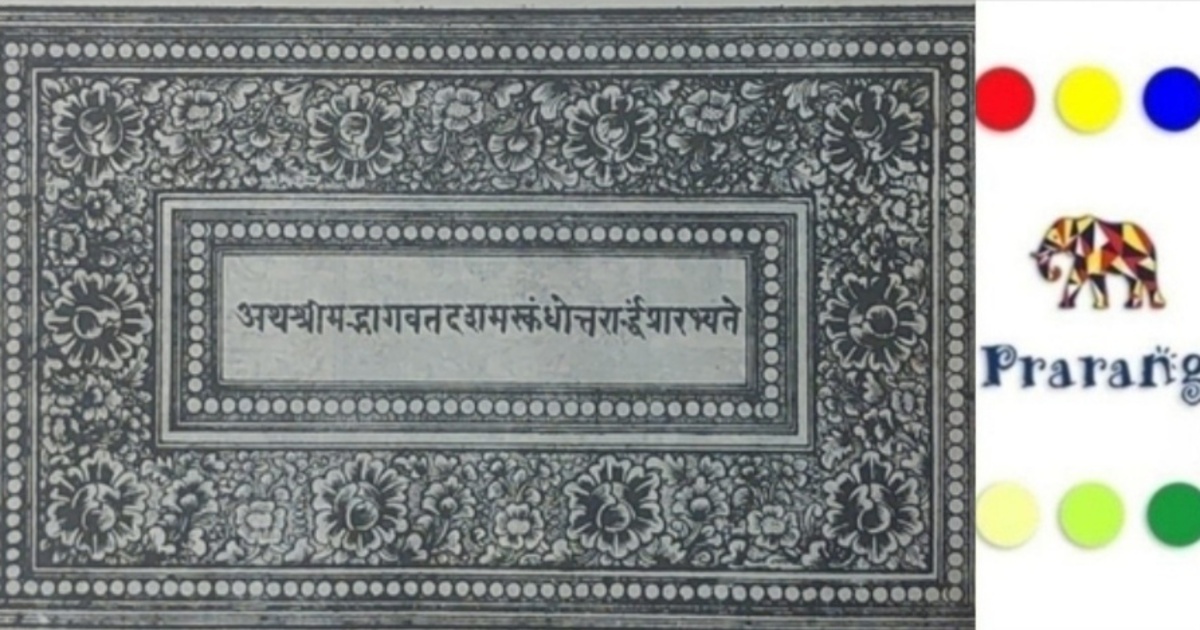 अथश्रीमद्भागवतदशमस्कंधोत्तरार्द्धप्रारभ्यते
Prarang